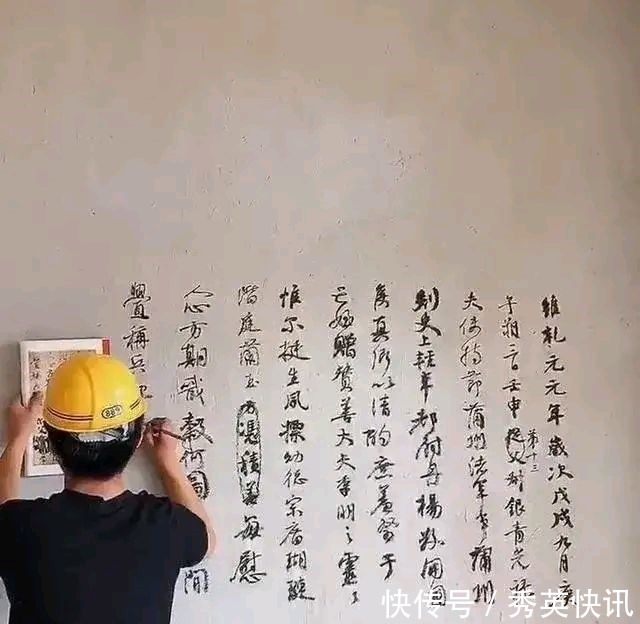 維乾元元年歲次戊戌九月庚
午朔三日壬申從父叔銀青光祿
第十三
夫使持節蒲州諸軍事蒲州
刺史上輕車都尉丹楊縣開國
侯真卿以清酌庶羞祭于
亡姪贈贊善大夫季明之靈
惟爾挺生夙標幼德宗廟瑚璉
階庭蘭玉方憑積善每慰
人心方期戩穀何圖間
釁稱兵犯
快传号/秀英快讯